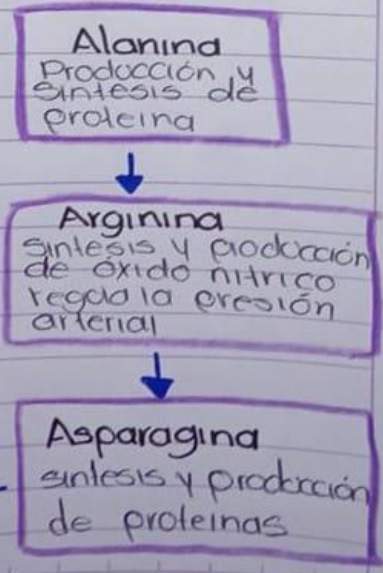 Alanina
Producción y
sintesis de
proteina
Arginina
sintesis y producción
de óxido nitrico
regula la presión
arterial
Asparagina
sintesis y producción
de proteinas